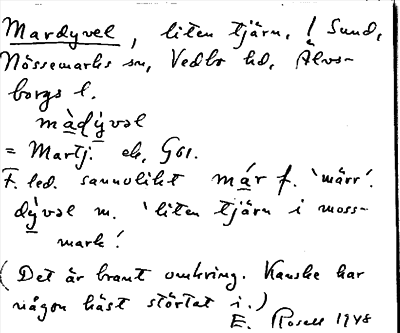 Mardyvel, liten tjärn, i Sund,
Nössemarks sn, Vedbo hd, Älvs-
borgs l.
màdývəl
= Martj. ek, G61.
F. led. sannolikt már f. 'märr'.
dývəl m. 'liten tjärn i moss-
mark'.
(Det är brant omkring. Kanske har
någon häst störtat i.)
E. Rosell 1948